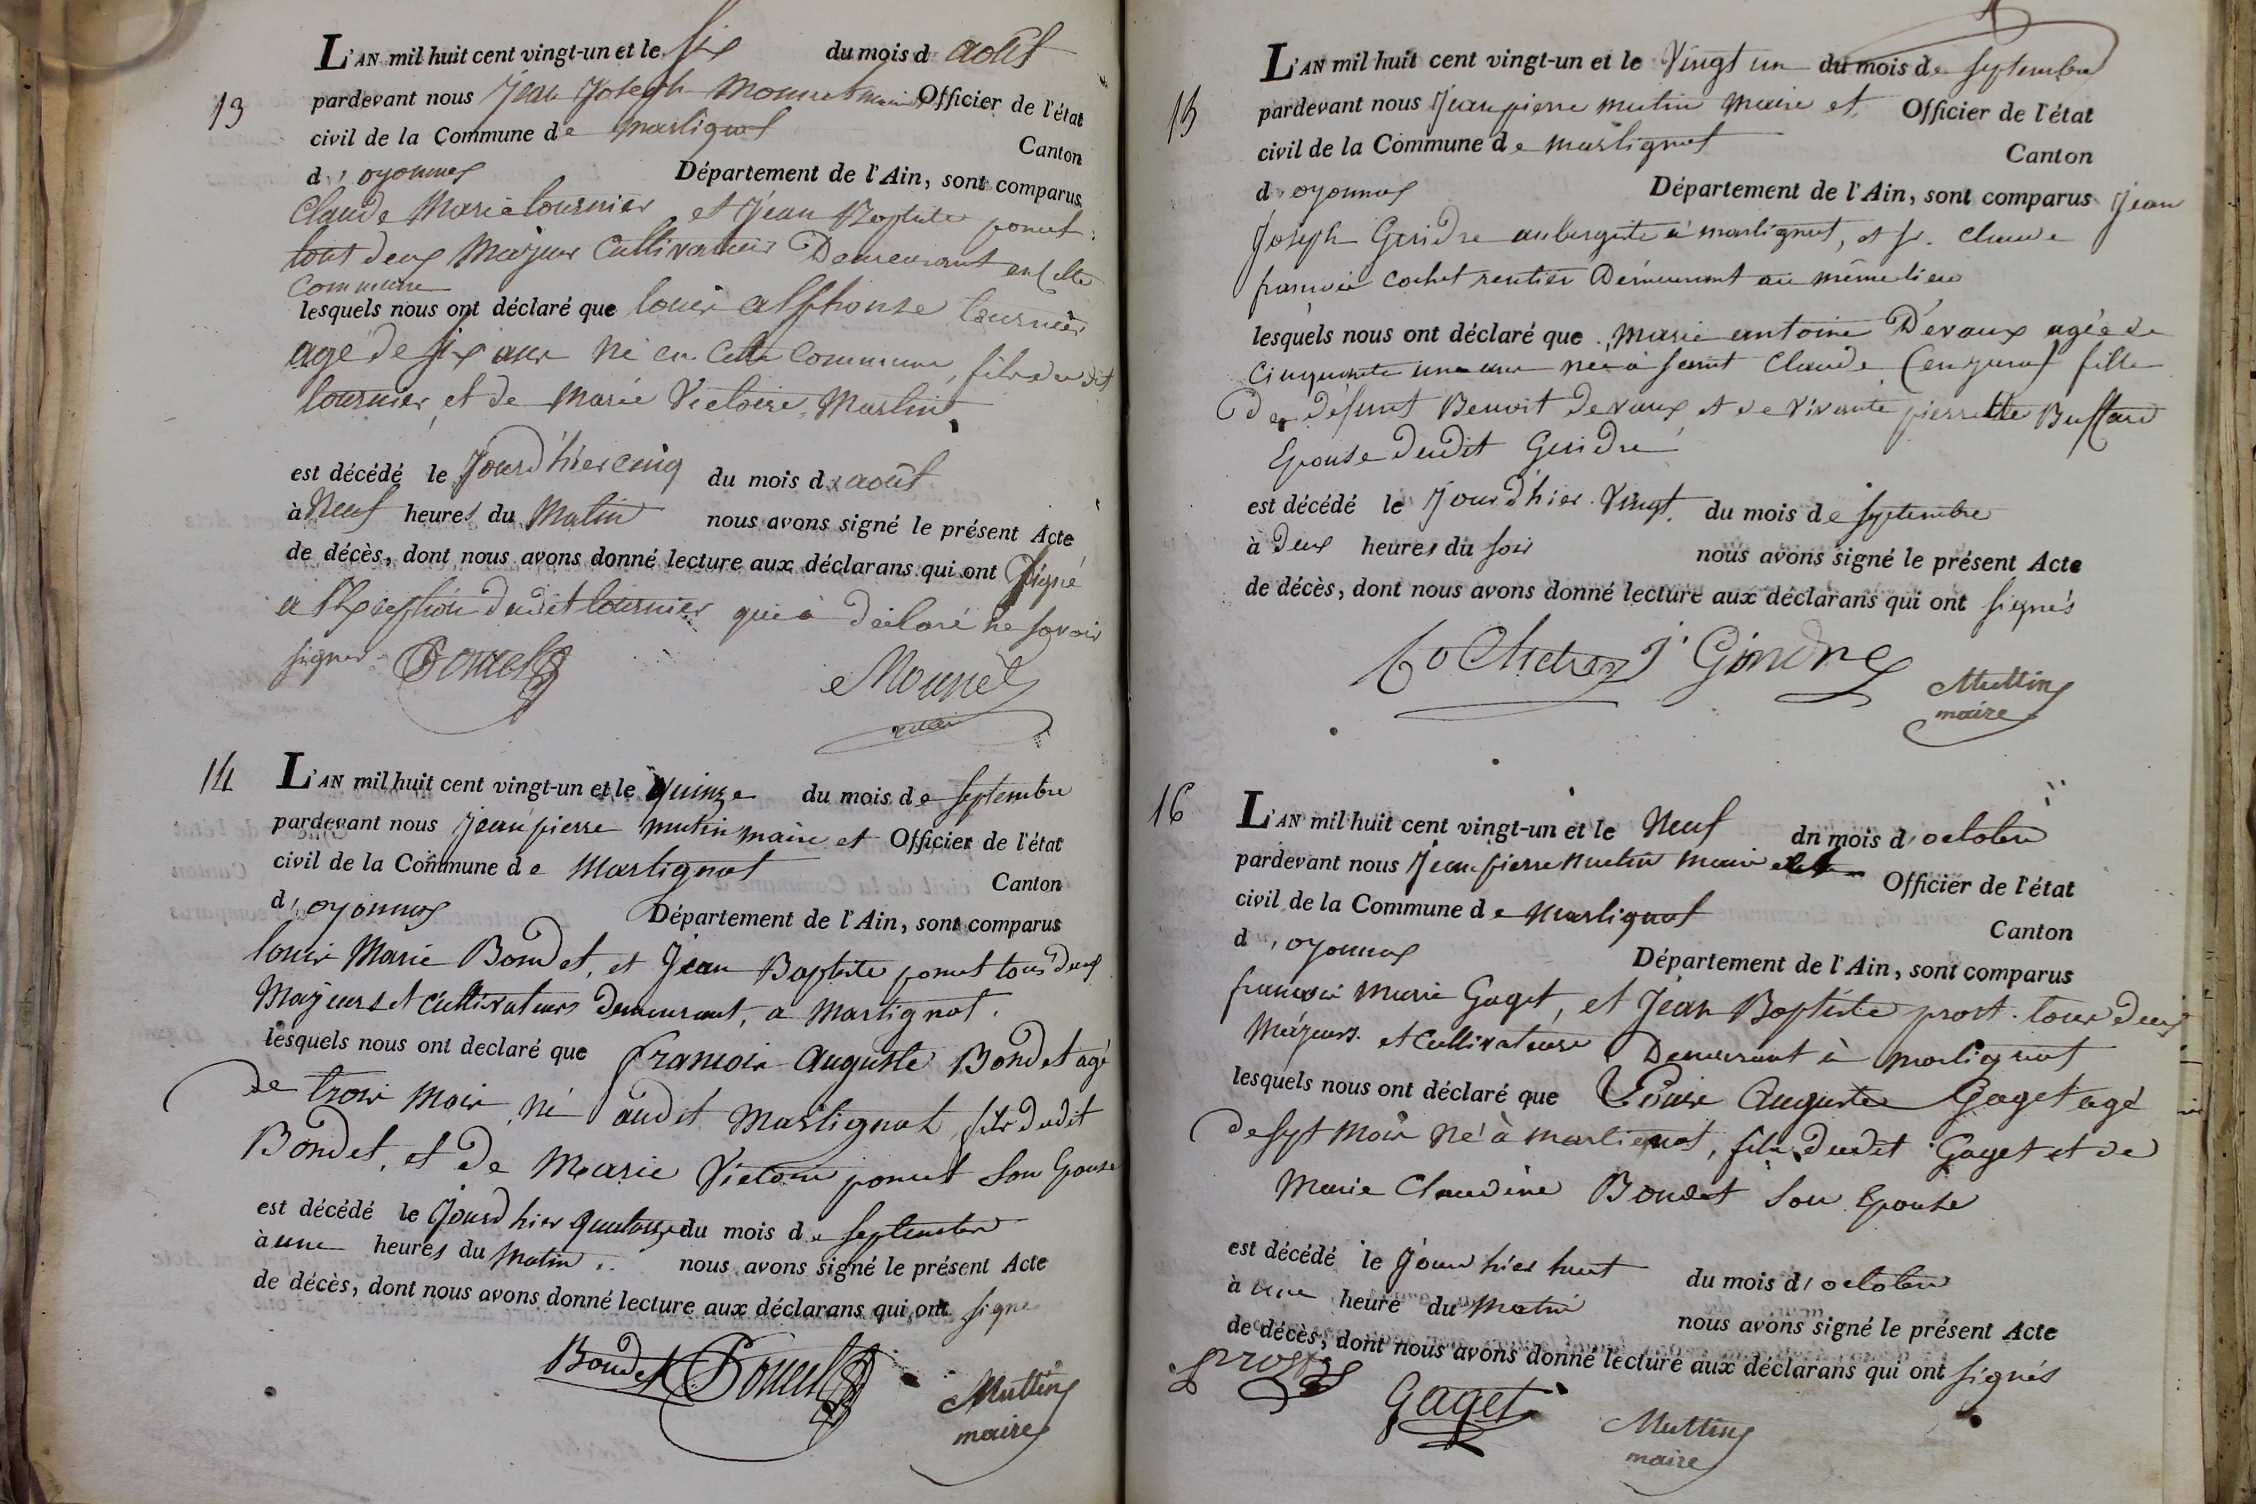 13
L'AN mil huit cent vingt-un et le six du mois d août
pardevant nous Jean Joseph Mounet maire Officier de l'état
civil de la Commune de Martignat
Canton
d'oyonnax Département de l'Ain, sont comparus
Claude Marie tournier et Jean Baptiste ponut
tout deux Majeur Cultivateurs Demeurant en cette
Commune
lesquels nous ont déclaré que louis alphonse tournier
agé de six ans né en Cette Commune, fils dudit
tournier, et de Marie Victoire Martin
est décédé le Jourd'hier cinq du mois d août
à Neuf heures du Matin nous avons signé le présent Acte
de décès, dont nous avons donné lecture aux déclarans qui ont signé
a l'Exception dudit tournier qui à déclaré ne savoir
signer. Ponut Mounet
maire
14
L'AN mil huit cent vingt-un et le quinze du mois de septembre
pardevant nous Jean pierre mutin maire et Officier de l'état
civil de la Commune de Martignat
Canton
d'oyonnax Département de l'Ain, sont comparus
louis Marie Bondet, et Jean Baptiste ponut tous deux
Majeurs et cultivateurs demeurant, a Martignat.
lesquels nous ont declaré que francois auguste Bondet agé
de trois mois né audit Martignat, fils dudit
Bondet, et de Marie Victoire ponut son Epouse
est décédé le Jourd'hier quatorze du mois de septembre
à une heures du matin nous avons signé le présent Acte
de décès, dont nous avons donné lecture aux déclarans qui ont signé
Bondet Ponut Muttin
maire
15
L'AN mil huit cent vingt-un et le Vingt un du mois de septembre
pardevant nous Jean pierre mutin Maire et Officier de l'état
civil de la Commune de Martignat
Canton
d'oyonnax Département de l'Ain, sont comparus Jean
Joseph Gindre aubergiste à martignat, et sr. claude
francois cochet rentier Demeurant au même lieu
lesquels nous ont déclaré que Marie antoine Devaux agée de
Cinquante un ans née à saint Claude (en jura) fille
de défunt Benoit devaux, et de vivante pierrette Buffard
Epouse dudit Gindre
est décédé le Jourd'hier Vingt du mois de septembre
à deux heures du soir nous avons signé le présent Acte
de décès, dont nous avons donné lecture aux déclarans qui ont signés
Cochet J Gindre Muttin
maire
16
L'AN mil huit cent vingt-un et le Neuf du mois d'octobre
pardevant nous Jean pierre mutin maire et Officier de l'état
civil de la Commune de Martignat
Canton
d'oyonnax Département de l'Ain, sont comparus
francois Marie Gaget, et Jean Baptiste prost tous deux
Majeurs et cultivateurs Demeurant à martignat
lesquels nous ont déclaré que Louis Auguste Gaget agé
de sept mois né à martignat, fils dudit Gaget et de
Marie Claudine Bondet son Epouse
est décédé le Jour hier huit du mois d'octobre
à une heure du matin nous avons signé le présent Acte
de décès, dont nous avons donné lecture aux déclarans qui ont signés
prost Gaget Muttin
maire